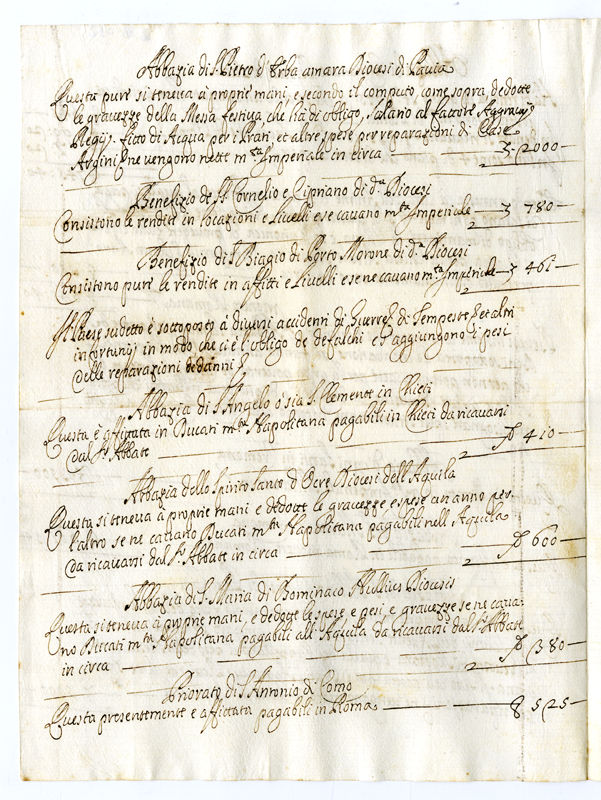 Abbazia di S. Pietro d'Erba amara Diocesi di Pavia
Questa pure si teneva à proprie mani, e secondo il computo come sopra, dedotte
le gravezze della Messa festiva, che hà di obligo, salario al fattore Aggravij
Regij. fitto di Acqua per i Prati, et altre spese per reparazioni di Case
Argini, ne vengono nette mta. Imperiale in circa — 2000 —
Benefizio de SS. Cornelio e Cipriano di da. Diocesi
Consistono le rendite in locazioni e Livelli e se cavano mta. Imperiale — 780 —
Benefizio di S. Biagio di Porto Morone di da. Diocesi
Consistono pure le rendite in affitti e Livelli e se ne cavano mta. Imperiale — 461 —
Il Paese sudetto è sottoposto à diversi accidenti di Guerre, di Tempeste, et altri
infortunij in modo che ci è l'obligo de defalchi et aggiungono i pesi
delle reparazioni de danni
Abbazia di S. Angelo ò sia S. Clemente in Chieti
Questa è affittata in Ducati mta. Napolitana pagabili in Chieti da ricavarsi
dal S. Abbate — 410 —
Abbazia dello Spirito Santo d'Ocre Diocesi dell'Aquila
Questa si teneva à proprie mani e dedotte le gravezze e spese un anno per
l'altro se ne cavano Ducati mta. Napolitana pagabili nell'Aquila
da ricavarsi dal S. Abbate in circa — 600 —
Abbazia di S. Maria di Bominaco Nullius Diocesis
Questa si teneva à proprie mani, e dedotte le spese e pesi, e gravezze se ne cava-
no Ducati mta. Napolitana pagabili all'Aquila da ricavarsi dal S. Abbate
in circa — 1380 —
Priorato di S. Antonio di Como
Questa presentemente è affittata pagabili in Roma — 525 —